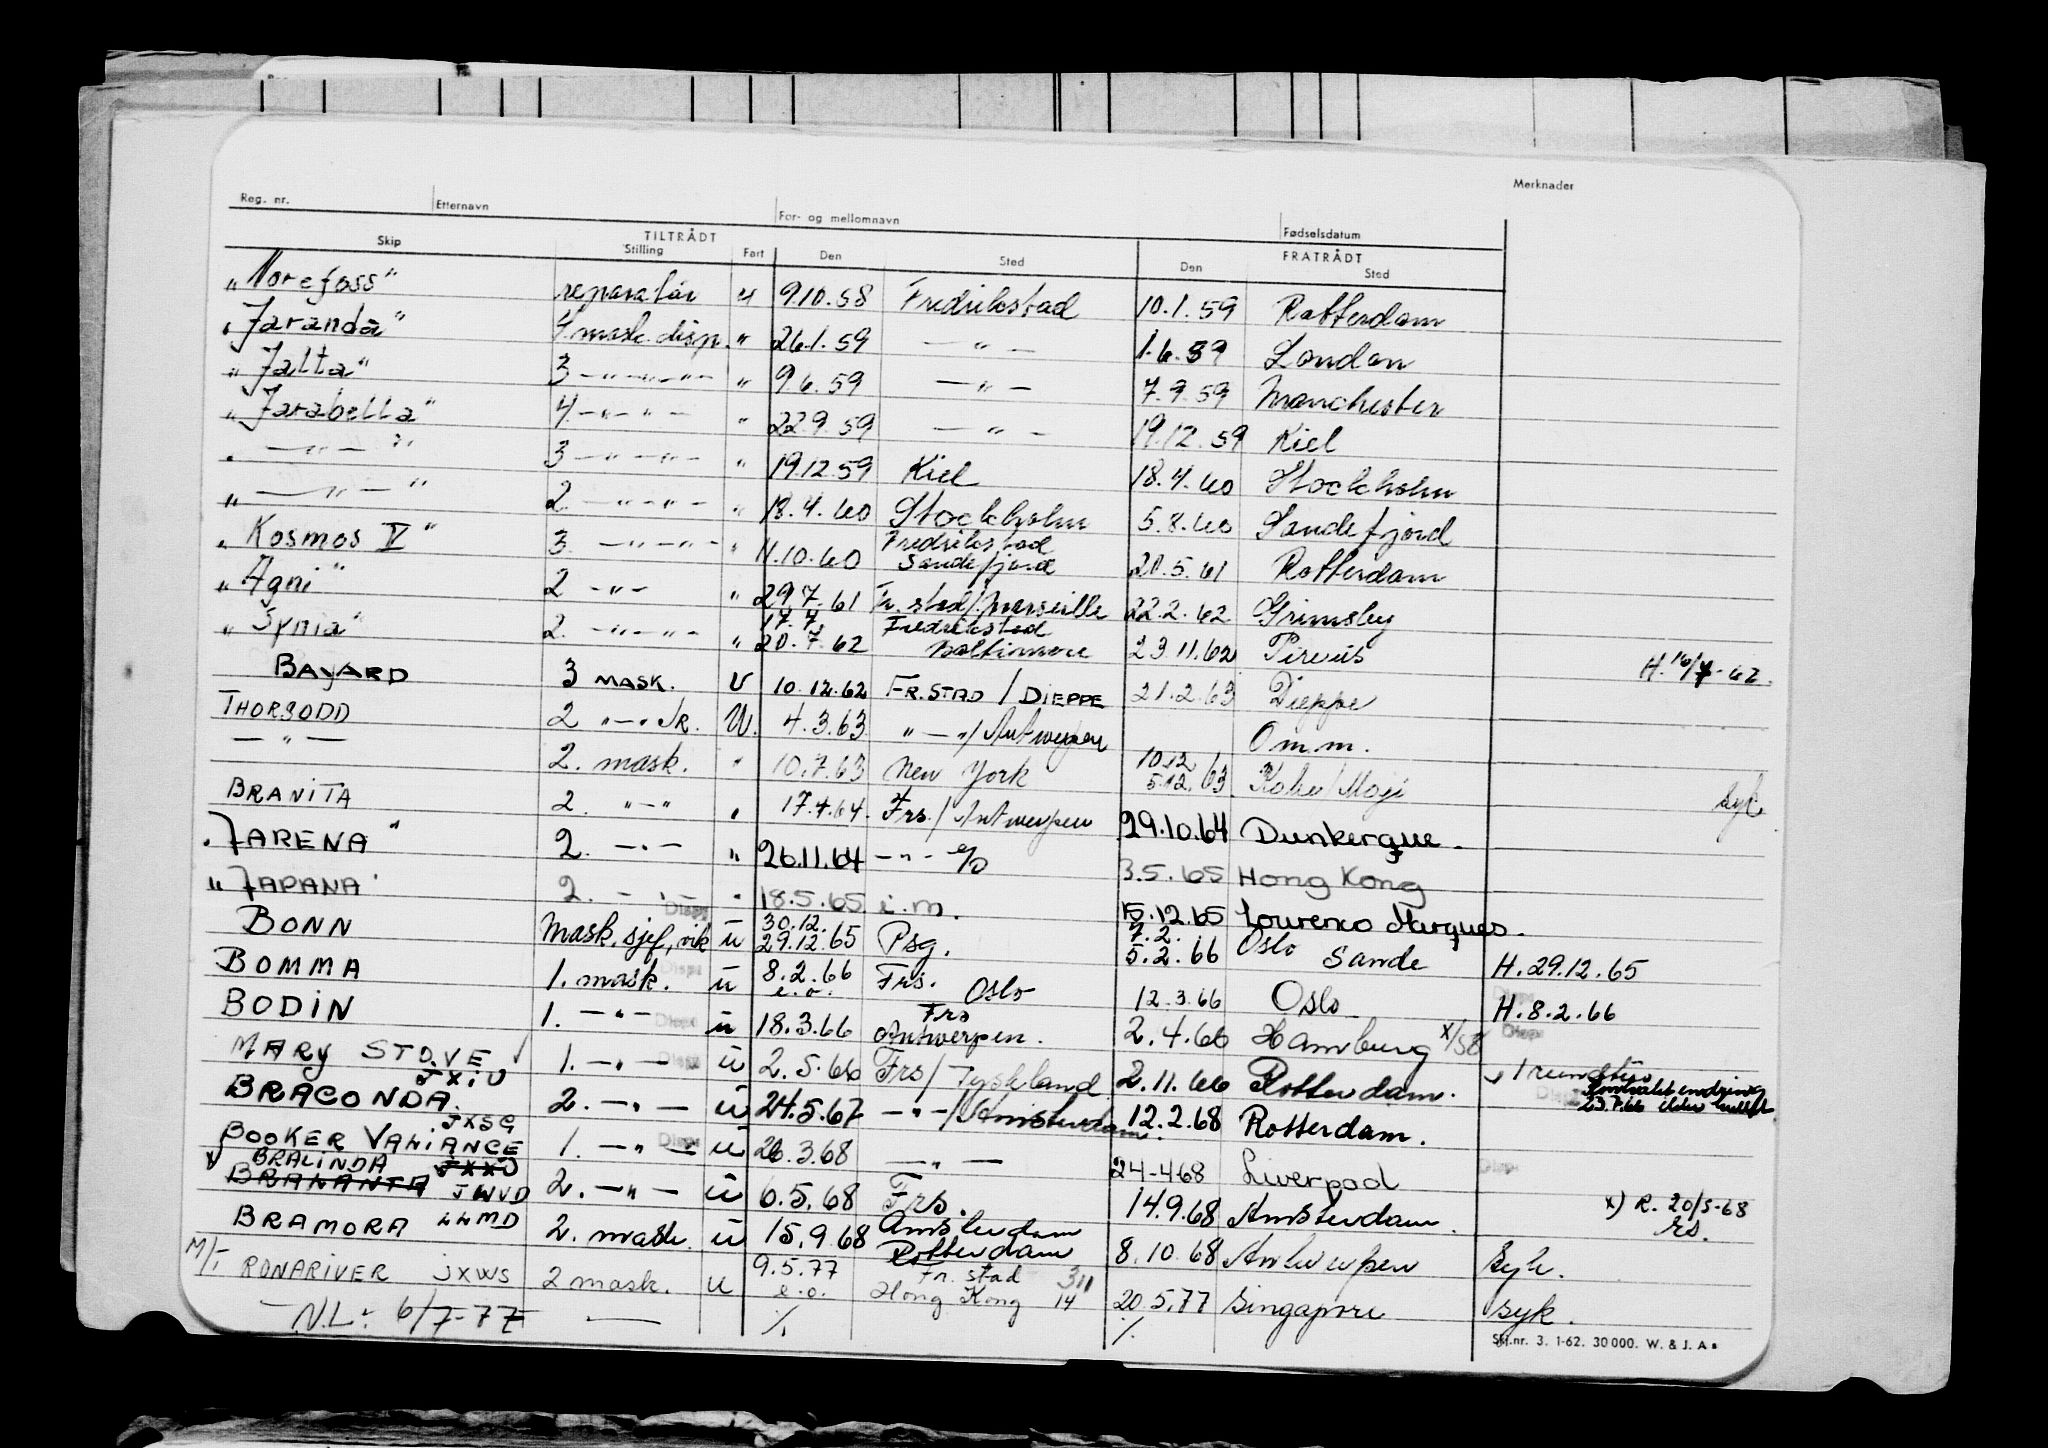 Reg. nr. Etternavn For- og mellomnavn Fødselsdatum Merknader
TILTRÅDT FRATRÅDT
Skip Stilling Fart Den Sted Den Sted
„Norefoss" reparatør u 9.10.58 Fredrikstad 10.1.59 Rotterdam
„Jaranda" 4. mask. disp. " 26.1.59 — " — 1.6.59 London
„Jalta" 3 —"—"—"— " 9.6.59 — " — 7.9.59 Manchester
„Jarabella" 4 —"— " — " 22.9.59 — " — 19.12.59 Kiel
„ — " — " 3 — " — " — " 19.12.59 Kiel 18.4.60 Stockholm
„ — " — " 2. — " — " — " 18.4.60 Stockholm 5.8.60 Sandefjord
„Kosmos V" 3. — " — " — " 11.10.60 Fredrikstad Sandefjord 20.5.61 Rotterdam
„Agni" 2 — " — " 29.7.61 Fr. stad/Marseille 22.2.62 Grimsby
„Synia" 2. — " — " — " 17.7. 20.7.62 Fredrikstad Baltimore 23.11.62 Pireus H. 16/7-62.
BAYARD 3 MASK. U 10.12.62 FR.STAD / DIEPPE 21.2.63 Dieppe
THORSODD 2 " — " Jr. U. 4.3.63 " — "/Antwerpen O m.m.
— " — 2. mask. " 10.7.63 New York 10.12 5.12.63 Kobe/Moji syk
BRANITA 2. " — " " 17.4.64 Frs./Antwerpen 29.10.64 Dunkerque.
„JARENA" 2. — " — " 26.11.64 — " — e/o 3.5.65 Hong Kong
„JAPANA" 2. — " — " 18.5.65 e.m. 15.12.65 Lourenco Marques.
BONN Mask.sjef, vik Disp u 30.12. 29.12.65 Psg. 7.2. 5.2.66 Oslo Sande H. 29.12.65
BOMMA 1. mask. Disp u 8.2.66 e.o. Frs. Oslo 12.3.66 Oslo H. 8.2.66
BODIN 1. — " — Disp u 18.3.66 Frs Antwerpen. 2.4.66 Hamburg x/ Disp
MARY STOVE JXIU 1. — " — Disp u 2.5.66 Frs/Tyskland 2.11.66 Rotterdam. 1 rundtur
23.7.66
BRACONDA. JXSG 2. — " — u 24.5.67 — " —/Amsterdam. 12.2.68 Rotterdam.
BOOKER VALIANCE JXXU 1. — " — Disp u 26.3.68 — " — 24-4.68 Liverpool Disp
x BRALINDA BRAHANTA JWVD 2. — " — u 6.5.68 Frs. 14.9.68 Amsterdam. x) R. 20/5-68
BRAMORA LLMD 2. mask. u 15.9.68 Amsterdam Rotterdam 8.10.68 Antwerpen Syk.
M/T RONARIVER JXWS 2 mask. u 9.5.77 e.o. Fr. stad Hong Kong 14 20.5.77 Singapore syk.
N.L: 6/7-77 — ./. ./.
Skj.nr. 3. 1-62. 30 000. W. & J. A s